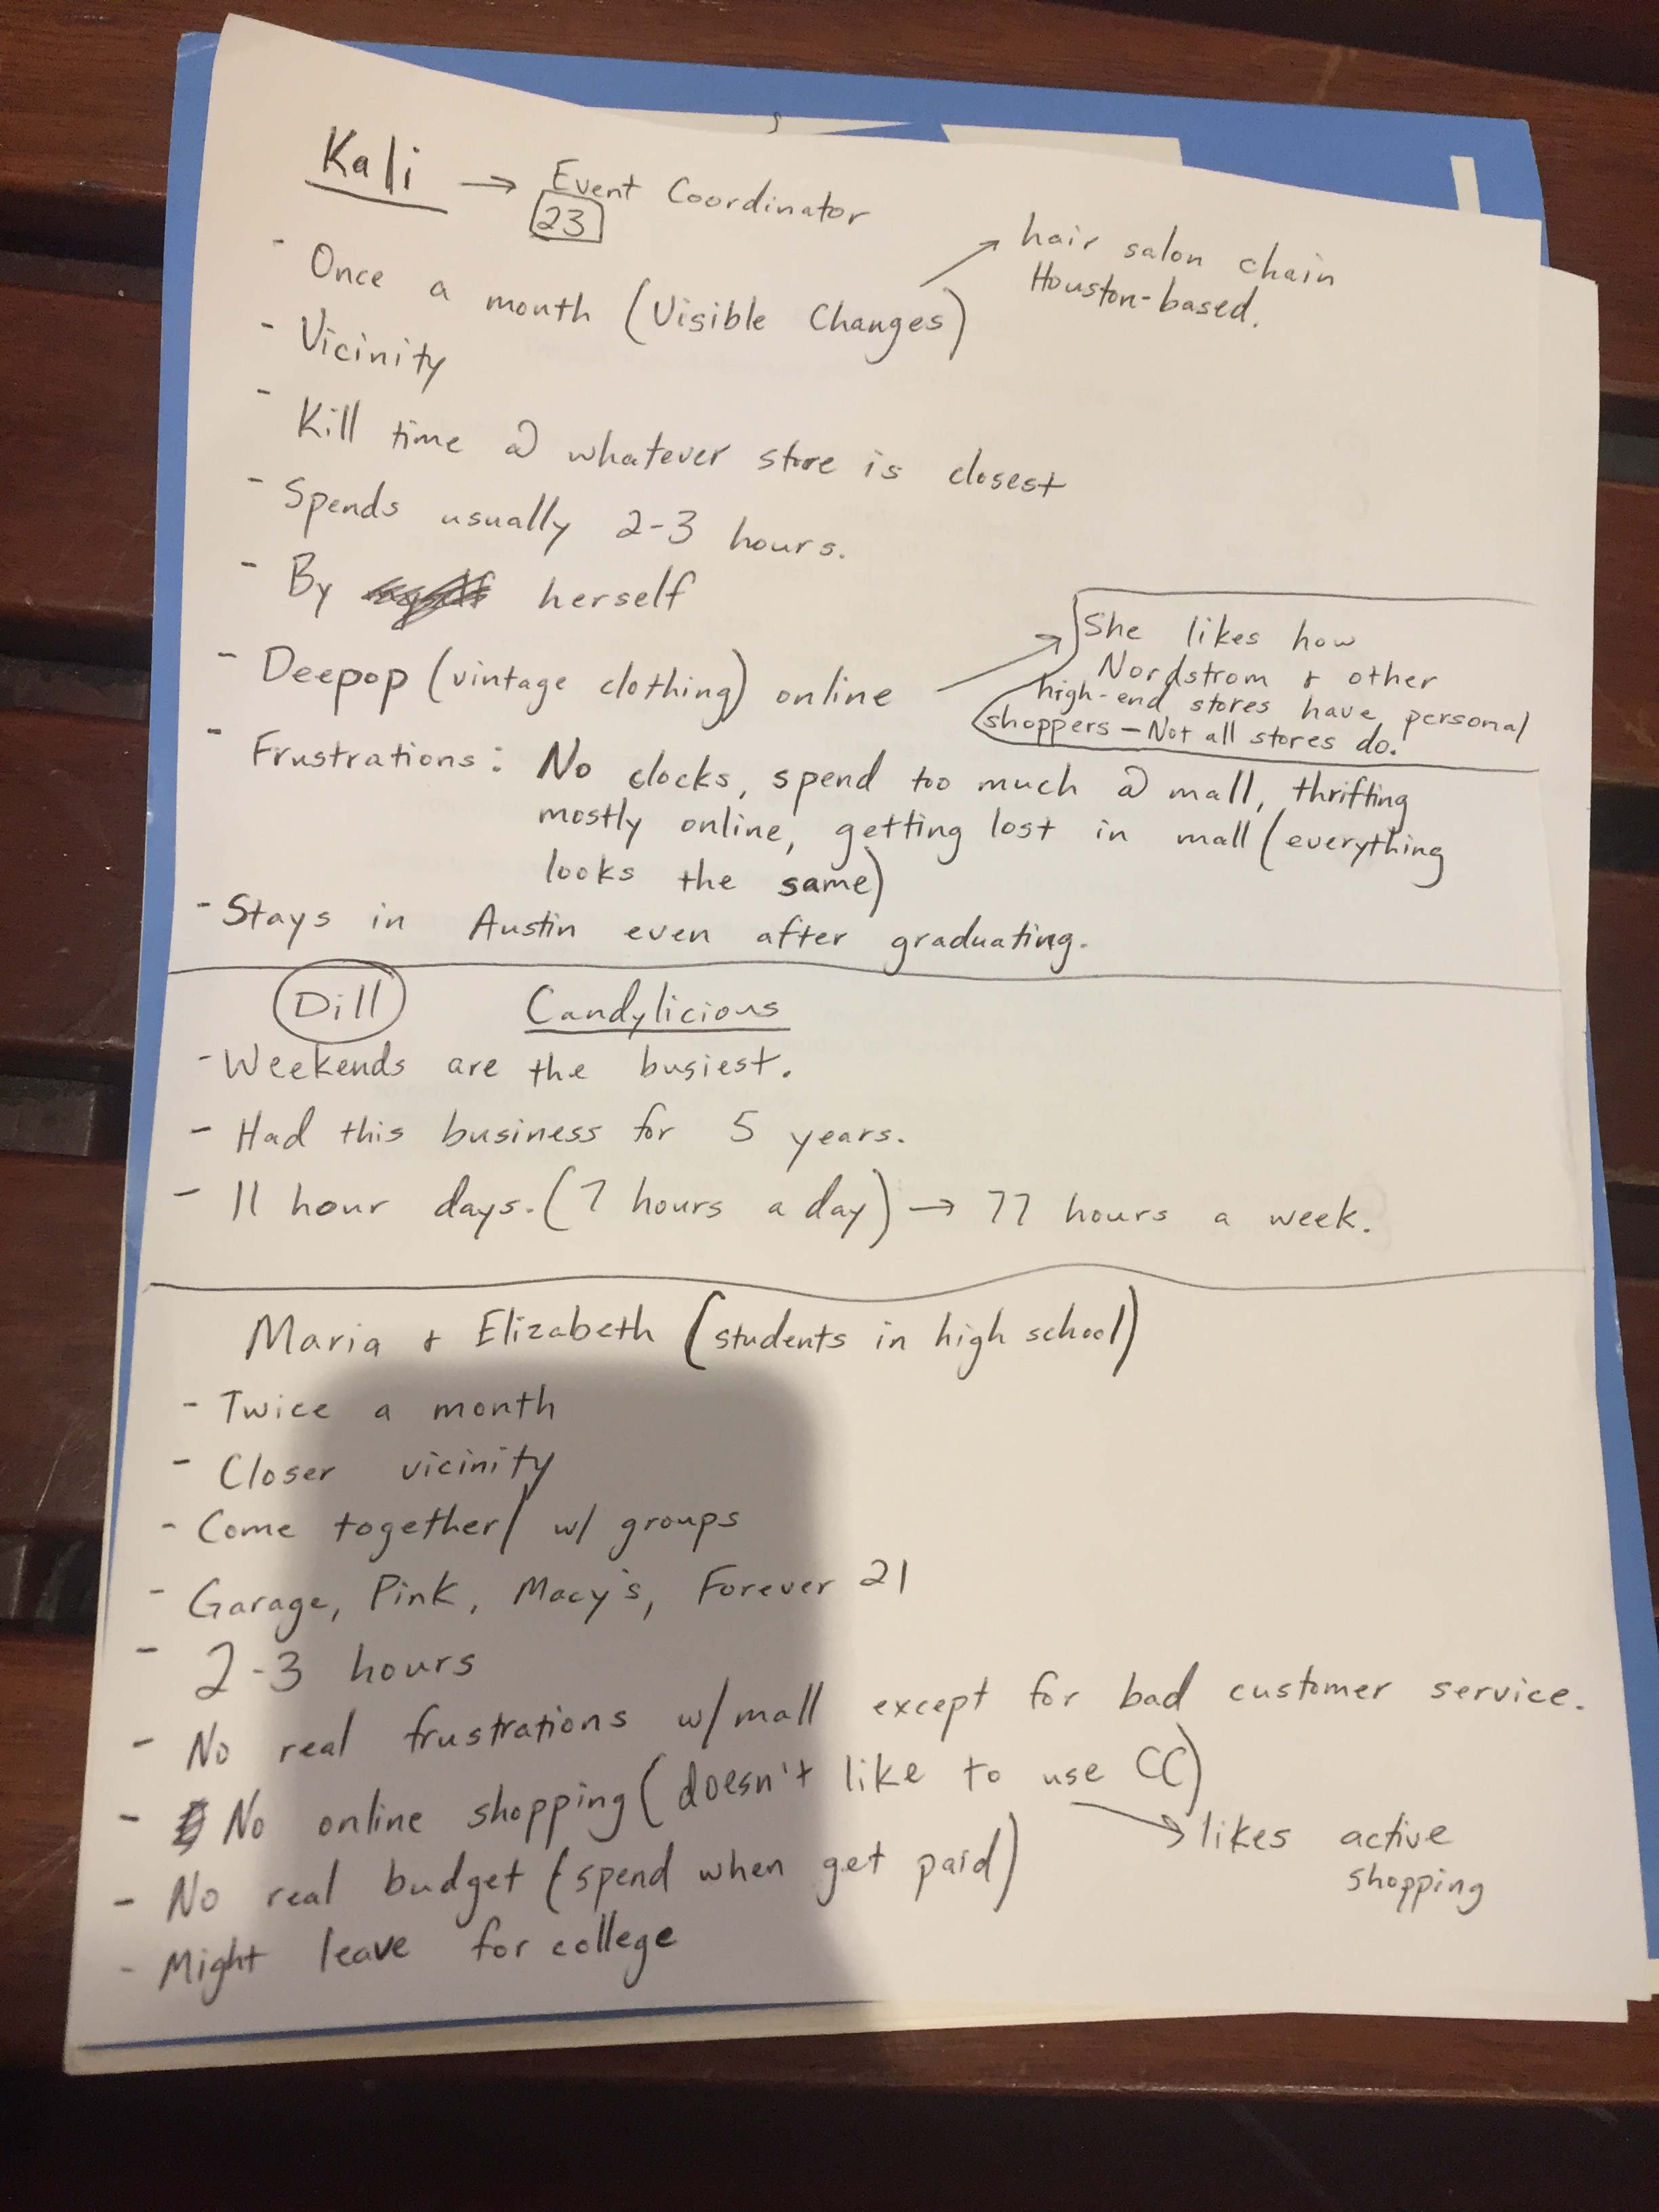 Kali → Event Coordinator
23
- Once a month (Visible Changes)
hair salon chain
Houston-based.
- Vicinity
- Kill time @ whatever store is closest
- Spends usually 2-3 hours.
- By herself
- Deepop (vintage clothing) online
She likes how
Nordstrom + other
high-end stores have personal
shoppers - Not all stores do.
- Frustrations: No clocks, spend too much @ mall, thrifting
mostly online, getting lost in mall (everything
looks the same)
- Stays in Austin even after graduating.
Dill Candylicious
- Weekends are the busiest.
- Had this business for 5 years.
- 11 hour days. (7 hours a day) → 77 hours a week.
Maria + Elizabeth (students in high school)
- Twice a month
- Closer vicinity
- Come together/ w/ groups
- Garage, Pink, Macy's, Forever 21
- 2-3 hours
- No real frustrations w/ mall except for bad customer service.
- No online shopping (doesn't like to use CC)
→ likes active
shopping
- No real budget (spend when get paid)
- Might leave for college